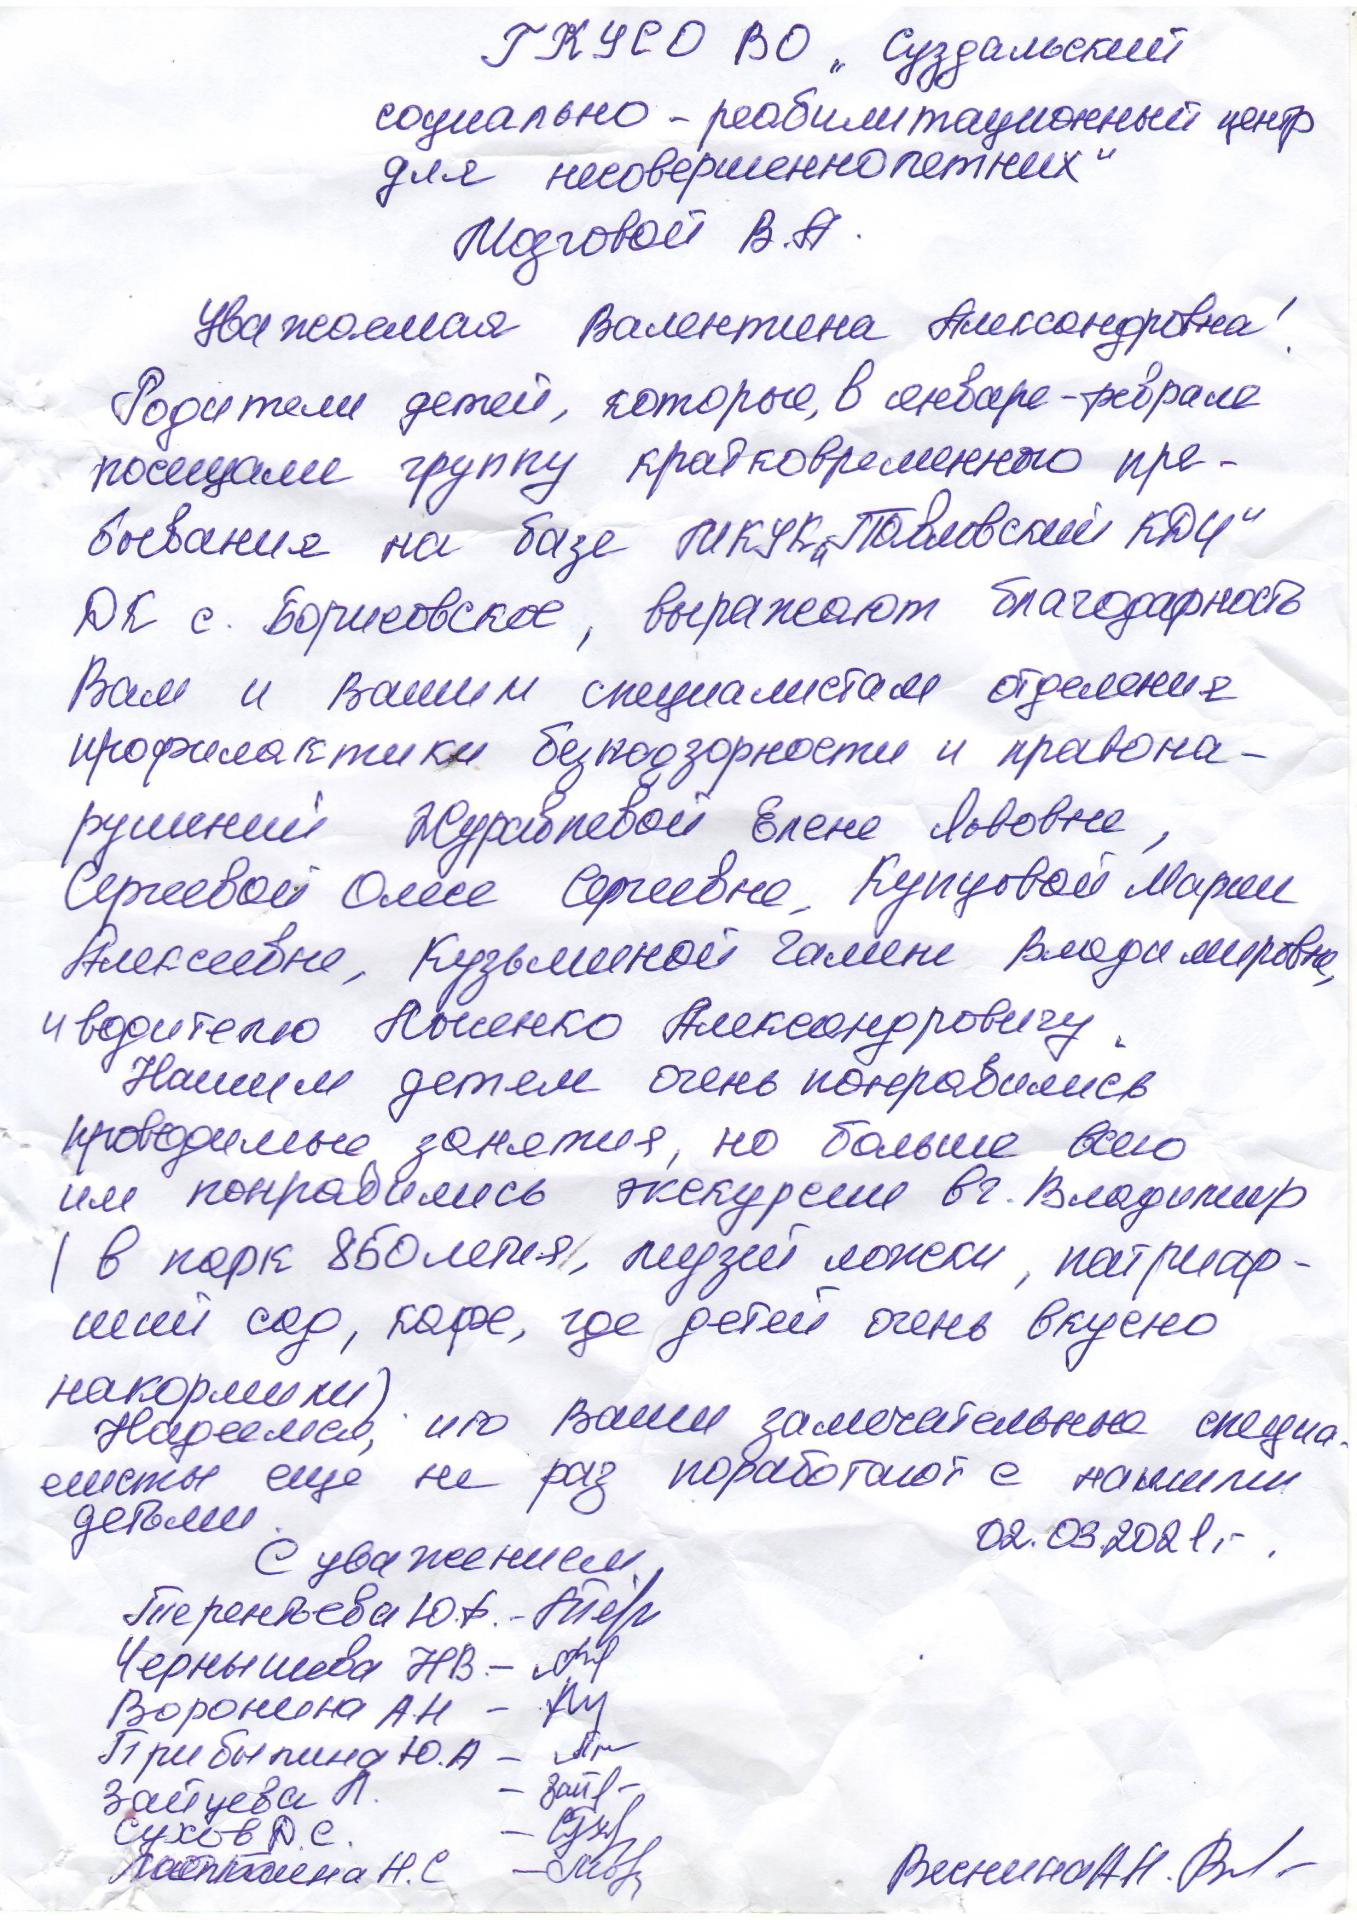 ГКУСО ВО „Суздальский
социально-реабилитационный центр
для несовершеннолетних"
Мозговой В.А.
Уважаемая Валентина Александровна!
Родители детей, которые, в январе-феврале
посещали группу кратковременного пре-
бывания на базе МКУК „Павловский КДЦ"
ДК с. Борисовское, выражают благодарность
Вам и Вашим специалистам отделения
профилактики безнадзорности и правона-
рушений Журавлевой Елене Львовне,
Сергеевой Олесе Сергеевне, Купцовой Марии
Алексеевне, Кузьминой Галине Владимировне,
и водителю Александровичу.
Нашим детям очень понравились
проводимые занятия, но больше всего
им понравились экскурсии в г. Владимир
(в парк 850летия, музей ложки, патриар-
ший сад, кафе, где детей очень вкусно
накормили)
Надеемся, что Ваши замечательные специа-
листы еще не раз поработают с нашими
детьми.
02.03.2021 г.
С уважением,
Терентьева Ю. -
Чернышева Н В -
Воронина А Н -
Прибылина Ю. А -
Зайцева Л. -
Сухов Д. С. -
Н. С -
Веснина А Н.